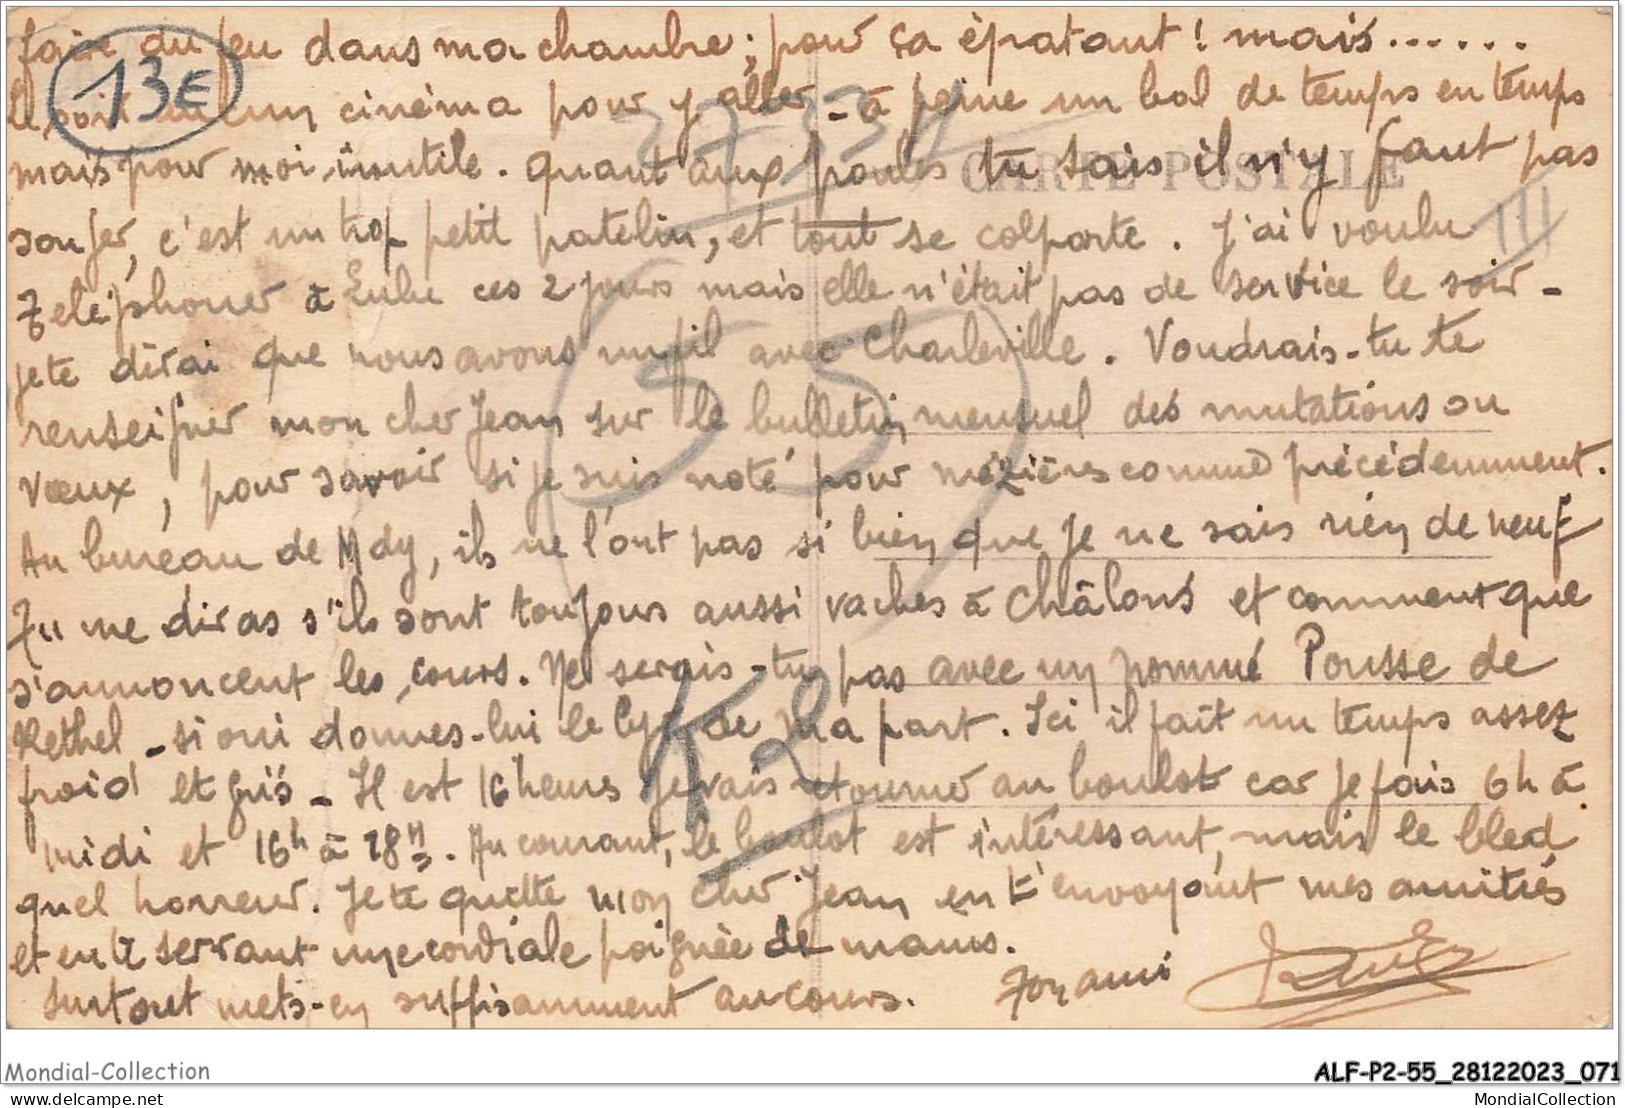 faire du feu dans ma chambre ; pour ça épatant ! mais......
le soir aucun cinéma pour y aller - à peine un bal de temps en temps
mais pour moi inutile. quant aux poules tu sais il n'y faut pas
songer, c'est un trop petit patelin, et tout se colporte. J'ai voulu
téléphoner à Lulu ces 2 jours mais elle n'était pas de service le soir -
je te dirai que nous avons un fil avec Charleville. Voudrais-tu te
renseigner mon cher Jean sur le bulletin mensuel des mutations ou
vœux, pour savoir si je suis noté pour mézières comme précédemment.
Au bureau de Mdy, ils ne l'ont pas si bien que je ne sais rien de neuf
Tu me diras s'ils sont toujours aussi vaches à Châlons et comment que
s'annoncent les cours. Ne serais-tu pas avec un nommé Pousse de
Rethel - si oui donnes-lui le de ma part. Ici il fait un temps assez
froid et gris - Il est 16 heures je vais retourner au boulot car je fais 6h à
midi et 16h à 18h. Au courant, le boulot est intéressant, mais le bled
quel horreur. Je te quitte mon cher Jean en t'envoyant mes amitiés
et en te serrant une cordiale poignée de mains.
Surtout mets-en suffisamment au cours. Ton ami
CARTE POSTALE
13€
55
K2
Mondial-Collection
ALF-P2-55_28122023_071
delcampe.net
MondialCollection